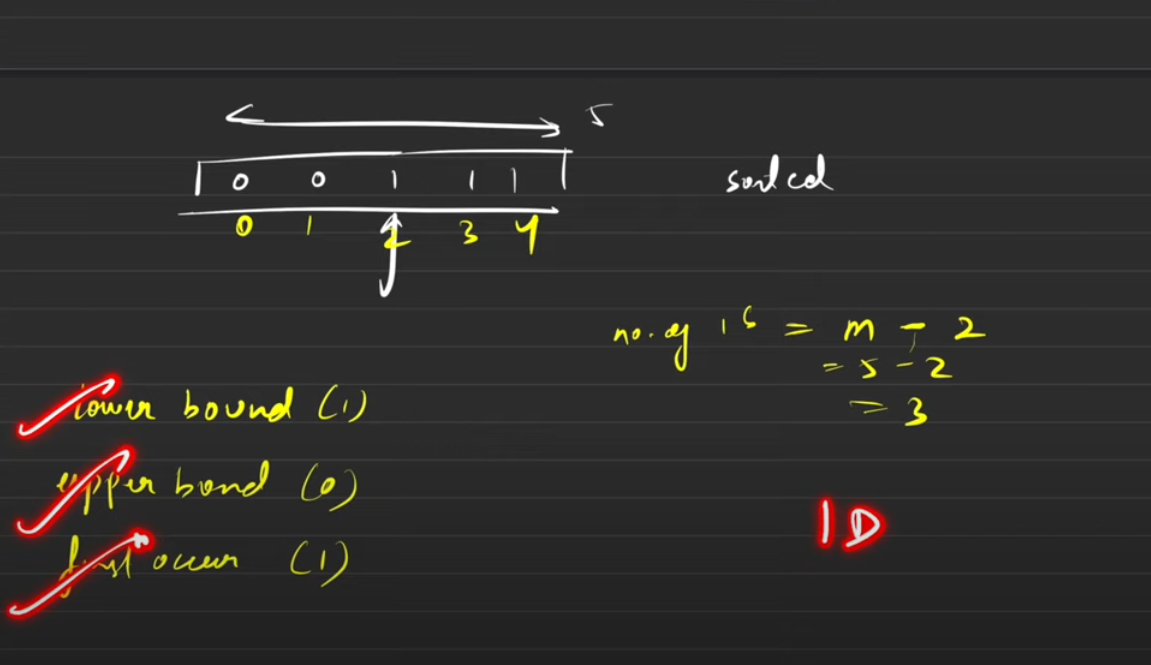 5
0 0 1 1 1
sorted
0 1 2 3 4
no. of 1s = m - 2
= 5 - 2
= 3
lower bound (1)
upper bond (0)
first occur (1)
1D